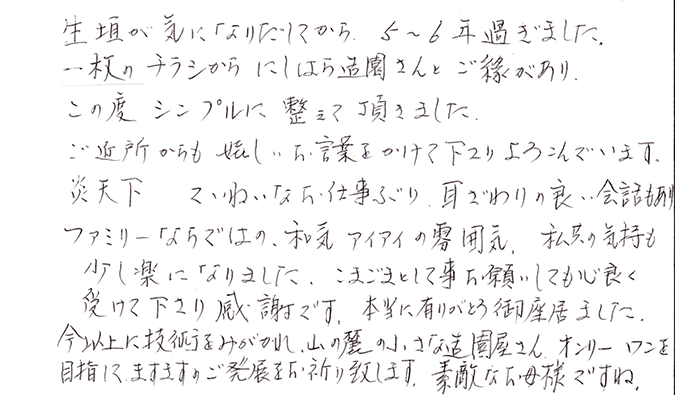 生垣が気になりだしてから 5～6年過ぎました。
一枚のチラシから にしはら造園さんと ご縁があり、
この度 シンプルに 整えて頂きました。
ご近所からも 嬉しいお言葉をかけて下さり よろこんでいます。
炎天下 ていねいなお仕事ぶり、耳ざわりの良い会話もあり
ファミリーならではの、和気アイアイの雰囲気、私共の気持も
少し楽になりました。こまごまとして事お願いしても心良く
受けて下さり感謝です。本当に有りがとう御座居ました。
今以上に技術をみがかれ、山の麓の小さな造園屋さん オンリーワンを
目指してますますのご発展をお祈り致します。素敵なお母様ですね。